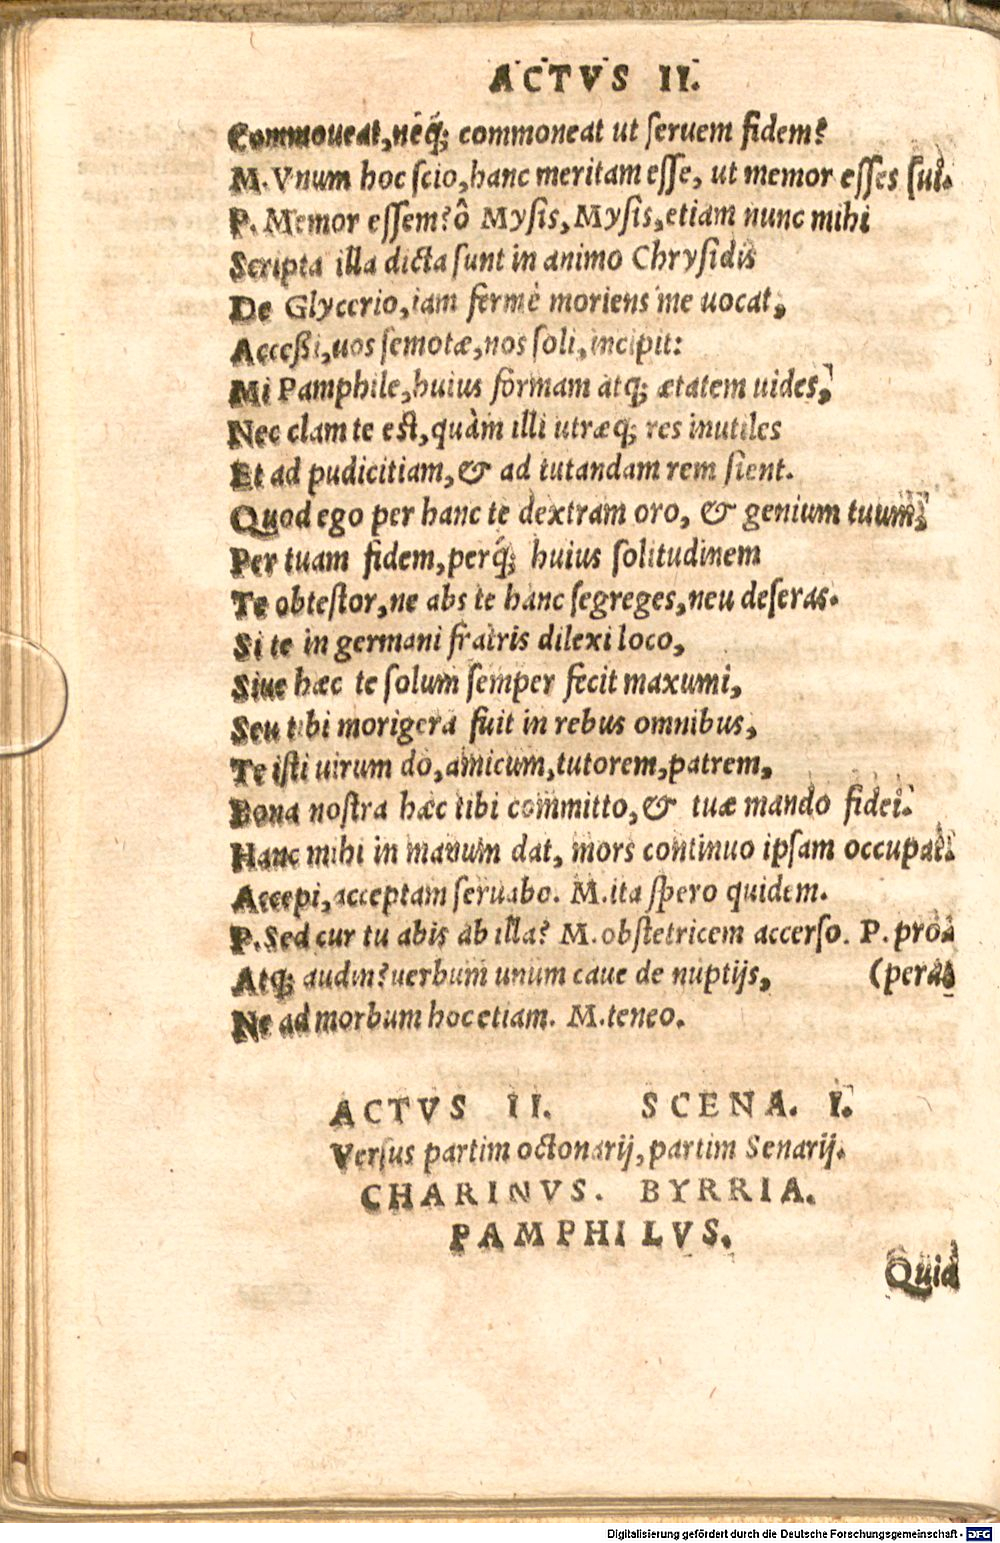 ACTVS II.
Commoueat, neq́; commoneat ut ſeruem fidem?
M. Vnum hoc ſcio, hanc meritam eſſe, ut memor eſſes ſui.
P. Memor eſſem? ô Myſis, Myſis, etiam nunc mihi
Scripta illa dicta ſunt in animo Chryſidis
De Glycerio, iam fermè moriens me uocat,
Acceßi, uos ſemotæ, nos ſoli, incipit:
Mi Pamphile, huius formam atq; ætatem uides,
Nec clam te eſt, quàm illi utræq; res inutiles
Et ad pudicitiam, & ad tutandam rem ſient.
Quod ego per hanc te dextram oro, & genium tuum,
Per tuam fidem, perq́; huius ſolitudinem
Te obteſtor, ne abs te hanc ſegreges, neu deſeras.
Si te in germani fratris dilexi loco,
Siue hæc te ſolum ſemper fecit maxumi,
Seu tibi morigera fuit in rebus omnibus,
Te iſti uirum do, amicum, tutorem, patrem,
Bona noſtra hæc tibi committo, & tuæ mando fidei.
Hanc mihi in manum dat, mors continuo ipſam occupat.
Accepi, acceptam ſeruabo. M. ita ſpero quidem.
P. Sed cur tu abis ab illa? M. obſtetricem accerſo. P. pro⸗
Atq; audin? uerbum unum caue de nuptijs, (peras
Ne ad morbum hoc etiam. M. teneo.
ACTVS II. SCENA. I.
Verſus partim octonarij, partim Senarij.
CHARINVS. BYRRIA.
PAMPHILVS.
Quid
Digitalisierung gefördert durch die Deutsche Forschungsgemeinschaft - DFG